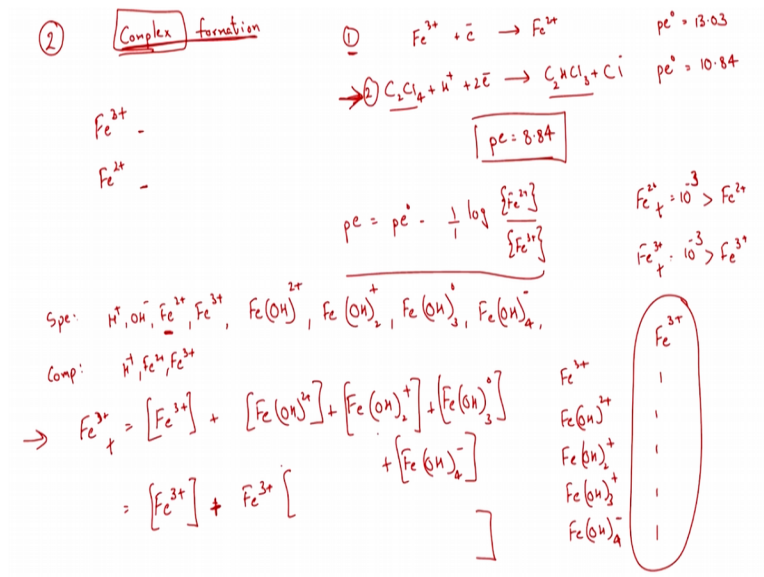 ② Complex formation
① Fe³⁺ + ē → Fe²⁺ pe° = 13.03
→ ② C₂Cl₄ + H⁺ + 2ē → C₂HCl₃ + Cl⁻ pe° = 10.84
pe = 8.84
Fe³⁺ -
Fe²⁺ -
pe = pe° - 1/1 log {Fe²⁺}/{Fe³⁺}
Fe²⁺ₜ = 10⁻³ > Fe²⁺
Fe³⁺ₜ = 10⁻³ > Fe³⁺
Spe: H⁺, OH⁻, Fe²⁺, Fe³⁺, Fe(OH)²⁺, Fe(OH)₂⁺, Fe(OH)₃⁰, Fe(OH)₄⁻,
Comp: H⁺, Fe²⁺, Fe³⁺
→ Fe³⁺ₜ = [Fe³⁺] + [Fe(OH)²⁺] + [Fe(OH)₂⁺] + [Fe(OH)₃⁰]
+ [Fe(OH)₄⁻]
= [Fe³⁺] + Fe³⁺ [
]
Fe³⁺
Fe³⁺ 1
Fe(OH)²⁺ 1
Fe(OH)₂⁺ 1
Fe(OH)₃⁺ 1
Fe(OH)₄⁻ 1